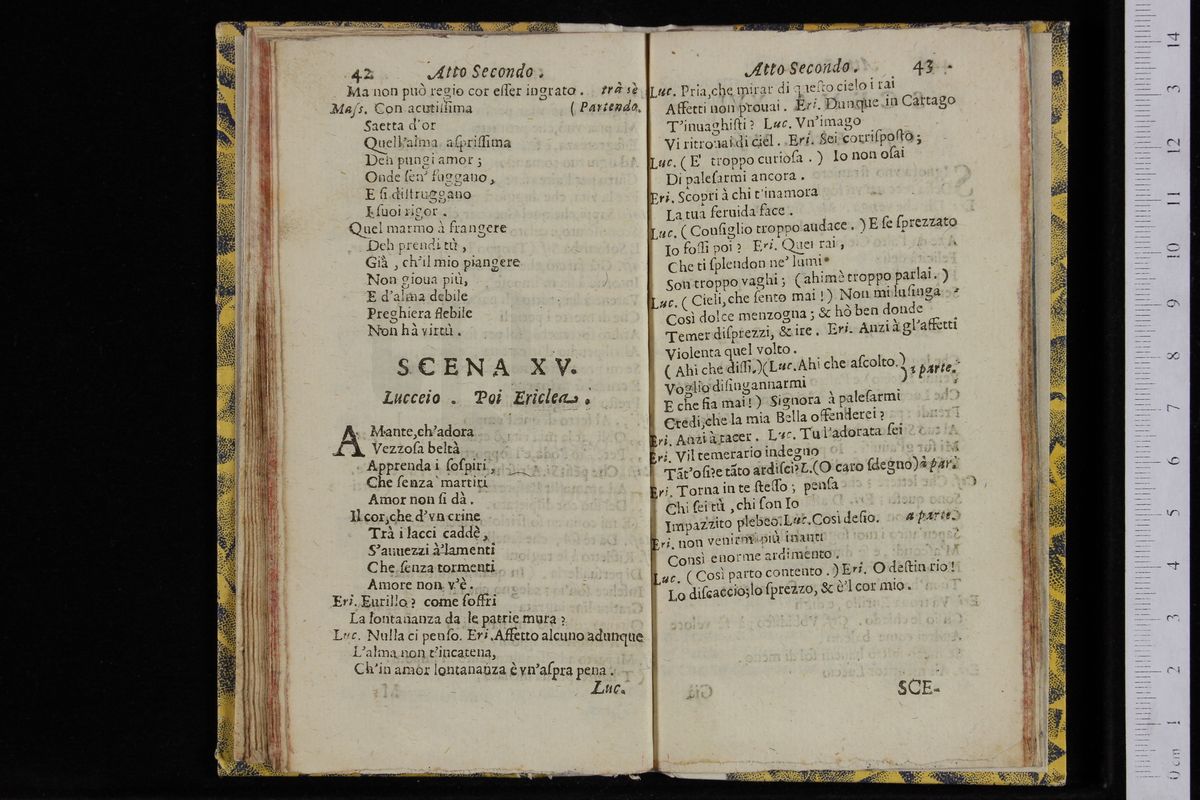 42 Atto Secondo.
Ma non può regio cor eſſer ingrato. trà sè
Maſs. Con acutiſſima (Partendo.
Saetta d'or
Quell'alma aſpriſſima
Deh pungi amor;
Onde ſen' fuggano,
E ſi diſtruggano
I ſuoi rigor.
Quel marmo à frangere
Deh prendi tù,
Già, ch'il mio piangere
Non gioua più,
E d'alma debile
Preghiera flebile
Non hà virtù.
SCENA XV.
Lucceio. Poi Ericlea.
AMante, ch'adora
Vezzoſa beltà
Apprenda i ſoſpiri,
Che ſenza martiri
Amor non ſi dà.
Il cor, che d'vn crine
Trà i lacci caddè,
S'auuezzi à'lamenti
Che ſenza tormenti
Amore non v'è.
Eri. Eurillo? come ſoffri
La lontananza da le patrie mura?
Luc. Nulla ci penſo. Eri. Affetto alcuno adunque
L'alma non t'incatena,
Ch'in amor lontananza è vn'aſpra pena.
Luc.
Atto Secondo. 43
Luc. Pria, che mirar di queſto cielo i rai
Affetti non prouai. Eri. Dunque in Cartago
T'inuaghiſti? Luc. Vn'imago
Vi ritrouai di ciel. Eri. Sei corriſpoſto;
Luc. (E' troppo curioſa.) Io non oſai
Di paleſarmi ancora.
Eri. Scopri à chi t'inamora
La tua feruida face.
Luc. (Conſiglio troppo audace.) E ſe ſprezzato
Io foſſi poi? Eri. Quei rai,
Che ti ſplendon ne' lumi
Son troppo vaghi; (ahimè troppo parlai.)
Luc. (Cieli, che ſento mai!) Non mi luſinga
Così dolce menzogna; & hò ben donde
Temer diſprezzi, & ire. Eri. Anzi à gl'affetti
Violenta quel volto.
(Ahi che diſſi.)(Luc. Ahi che aſcolto.) } à parte.
Voglio diſingannarmi
E che fia mai!) Signora à paleſarmi
Credi, che la mia Bella offenderei?
Eri. Anzi à tacer. Luc. Tu l'adorata ſei
Eri. Vil temerario indegno
Tãt'oſi? e tãto ardiſci? L. (O caro ſdegno) à par.
Eri. Torna in te ſteſſo; penſa
Chi ſei tù, chi ſon Io
Impazzito plebeo. Luc. Così deſio. a parte.
Eri. non venirmi più inanti
Consì enorme ardimento.
Luc. (Così parto contento.) Eri. O deſtin rio!
Lo diſcaccio; lo ſprezzo, & è'l cor mio.
SCE-